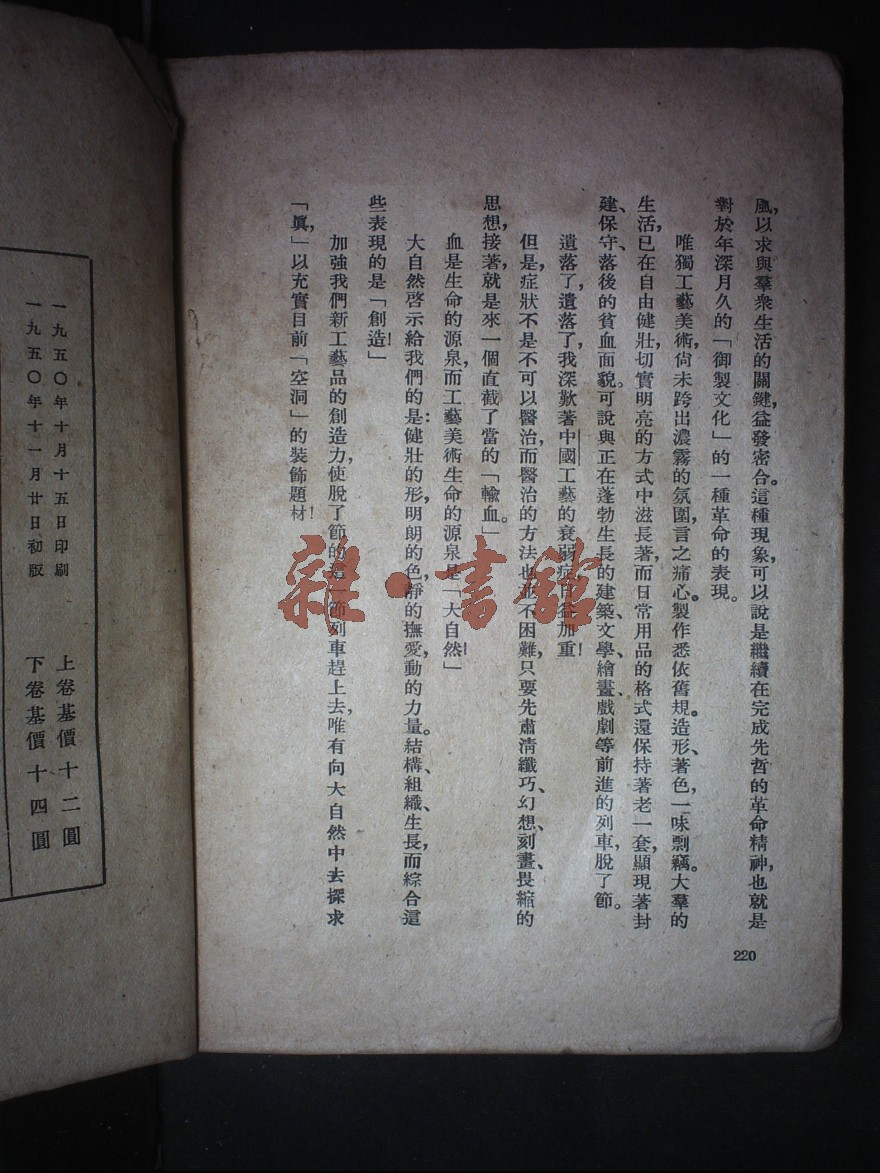 風，以求與羣衆生活的關鍵，益發密合。這種現象，可以說是繼續在完成先哲的革命精神，也就是
對於年深月久的「御製文化」的一種革命的表現。
唯獨工藝美術，尙未跨出濃霧的氛圍，言之痛心。製作悉依舊規。造形、著色，一味剽竊。大羣的
生活，已在自由健壯，切實明亮的方式中滋長著，而日常用品的格式還保持著老一套，顯現著封
建、保守、落後的貧血面貌。可說與正在蓬勃生長的建築、文學、繪畫、戲劇等前進的列車，脫了節。
遺落了，遺落了，我深歎著中國工藝的衰弱症，日益加重！
但是，症狀不是不可以醫治，而醫治的方法也並不困難，只要先肅清纖巧、幻想、刻畫、畏縮的
思想，接著，就是來一個直截了當的「輸血。」
血是生命的源泉，而工藝美術生命的源泉是「大自然！」
大自然啓示給我們的是：健壯的形，明朗的色，靜的撫愛，動的力量。結構、組織、生長，而綜合這
些表現的是「創造！」
加強我們新工藝品的創造力，使脫了節的這一節列車趕上去，唯有向大自然中去探求
「眞，」以充實目前「空洞」的裝飾題材！
220
一九五〇年十月十五日印刷
一九五〇年十一月廿日初版
上卷基價十二圓
下卷基價十四圓
雜·書館